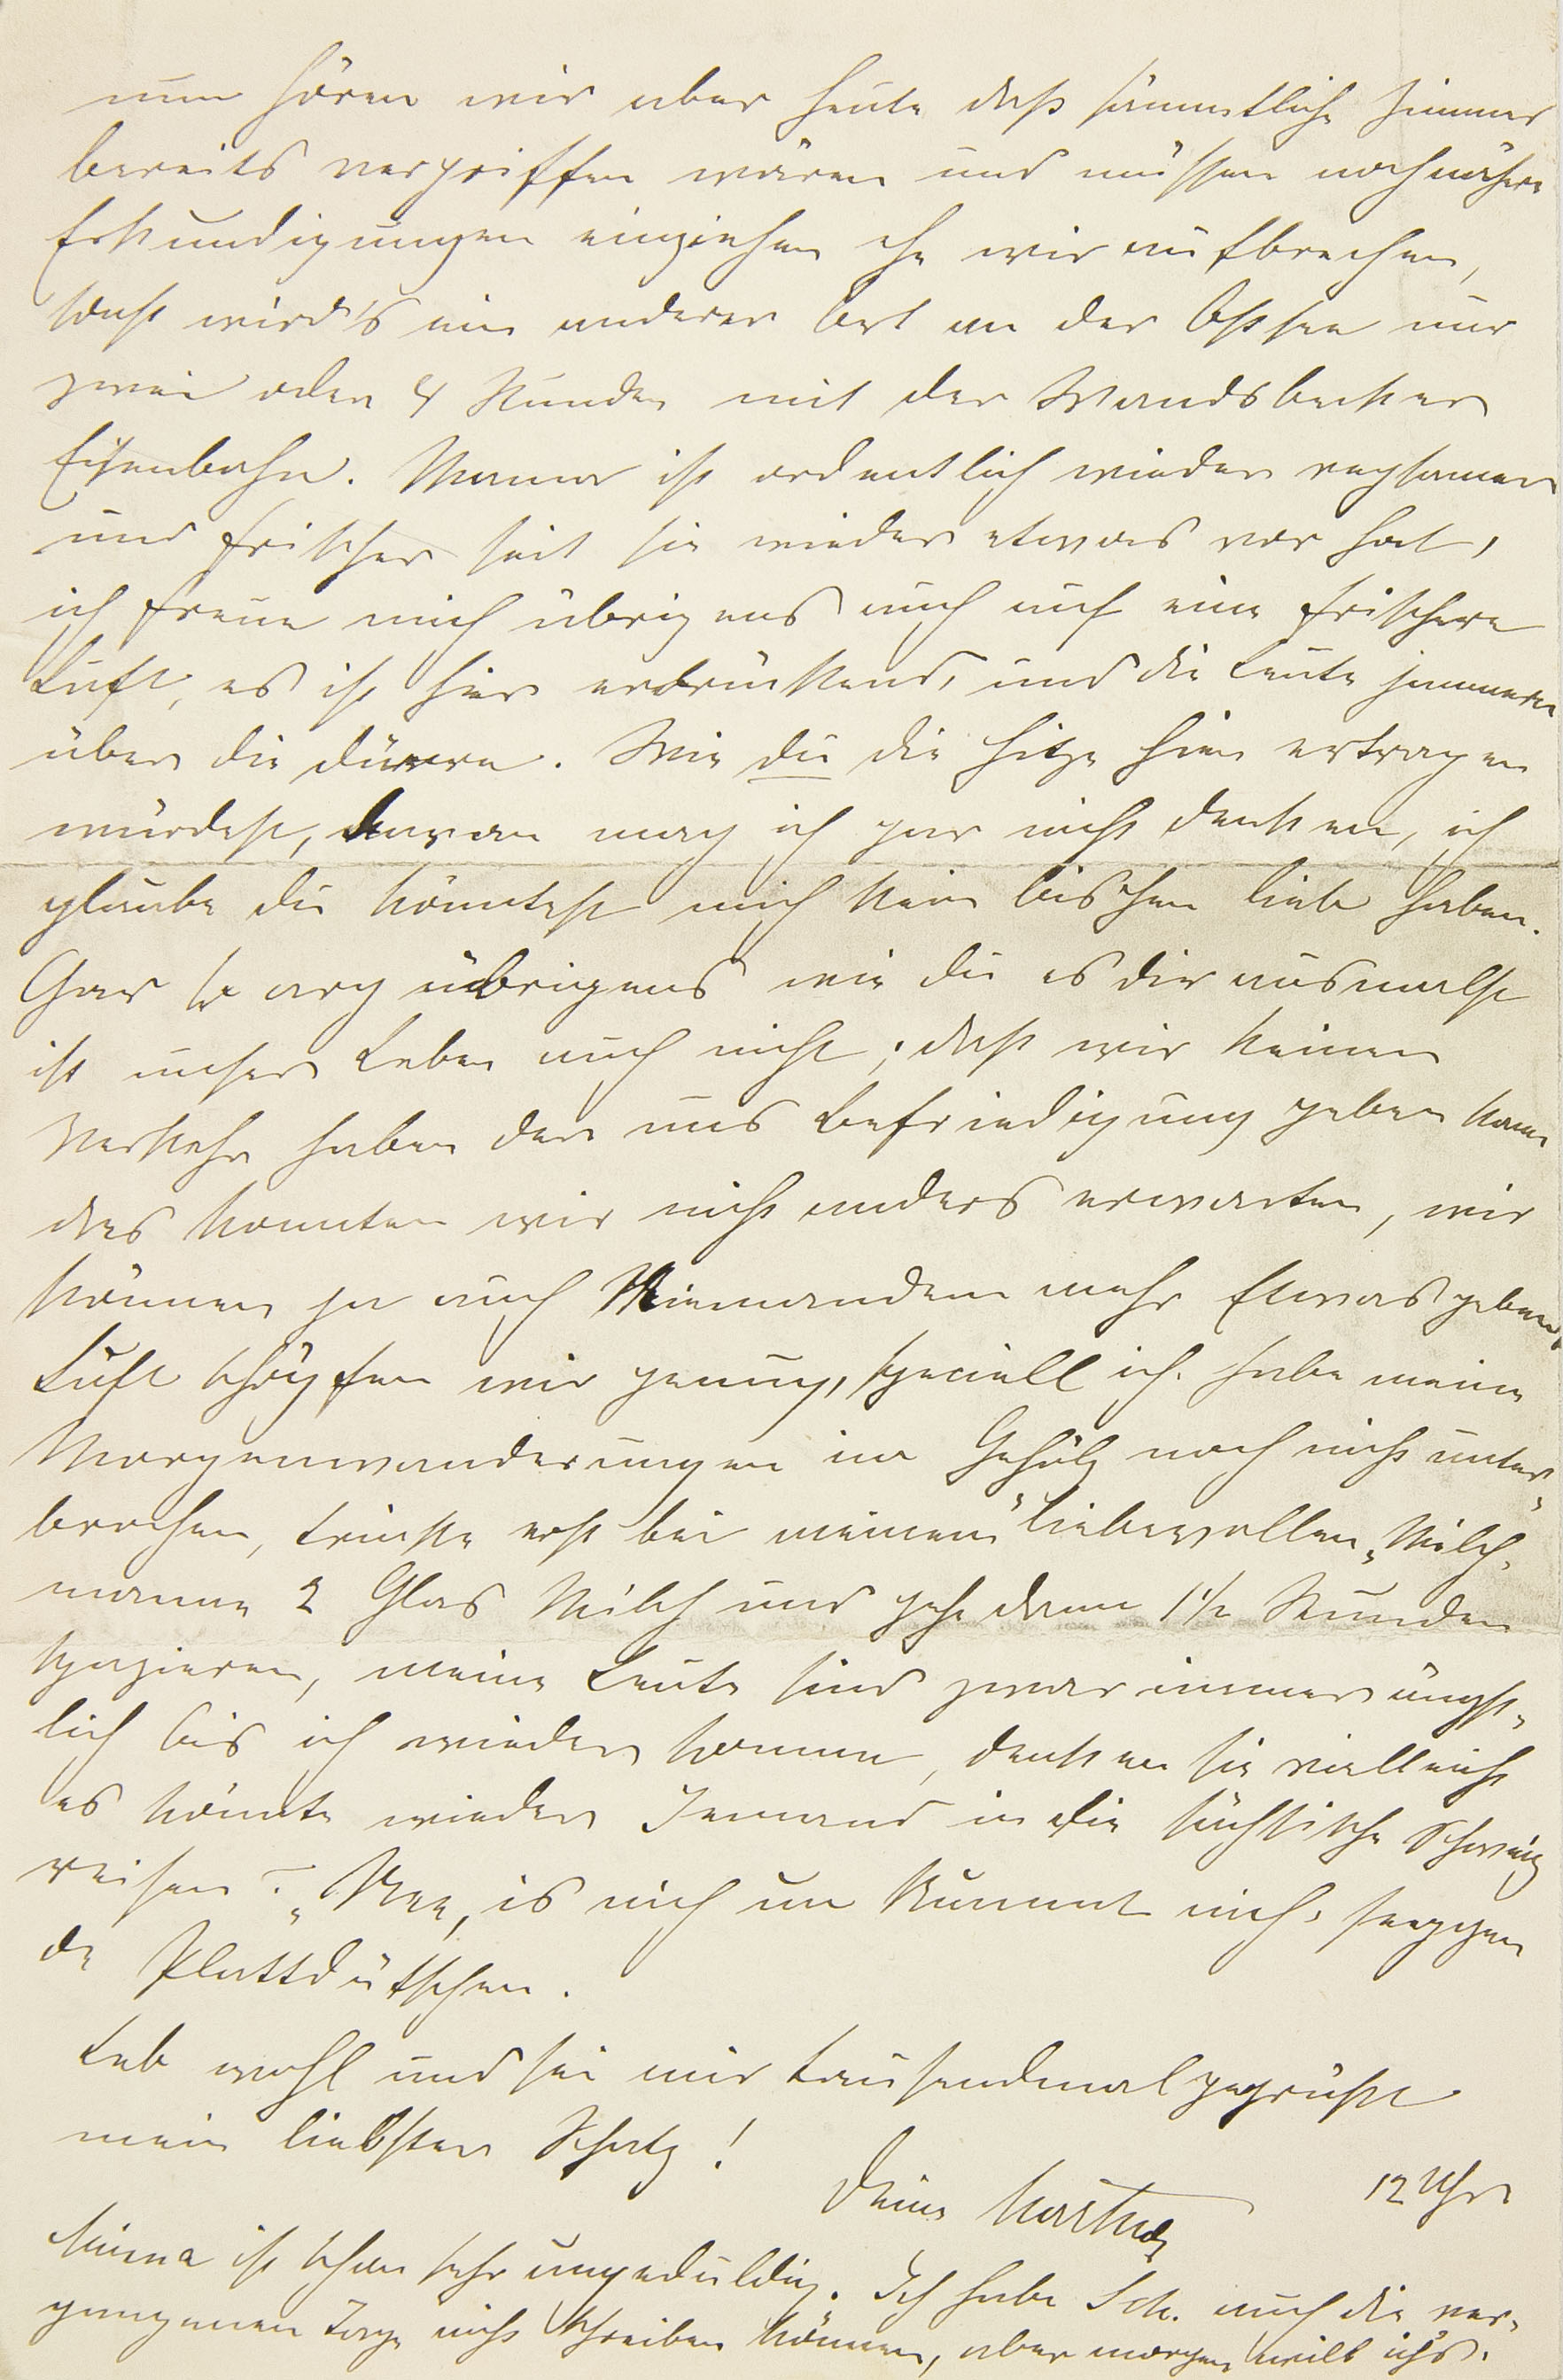 nun hören wir aber heute daß sämmtliche Zimmer
bereits vergriffen wären und müssen noch nähere
Erkundigungen einziehen ehe wir aufbrechen,
sonst wird's ein anderer Ort an der Ostsee nur
zwei oder 4 Stunden mit der Wandsbecker
Eisenbahn. Mama ist ordentlich wieder regsamer
und frischer seit sie wieder etwas vor hat,
ich freue mich übrigens auch auf eine frischere
Luft, es ist hier erdrückend, und die Leute jammern
über die dürre. Wie du die Hitze hier ertragen
würdest, daran mag ich gar nicht denken, ich
glaube du könntest mich kein bischen lieb haben.
Gar so arg übrigens wie du es dir ausmalst
ist unser Leben auch nicht; daß wir keinen
Verkehr haben der uns Befriedigung geben kann
das konnten wir nicht anders erwarten, wir
können ja auch Niemandem mehr Etwas geben,
Luft schöpfen wir genug, speciell ich habe meine
Morgenwanderungen im Gehölz noch nicht unter-
brochen, trinke erst bei meinem "liebevollen" Milch-
manne 2 Glas Milch und gehe dann 1 1/2 Stunden
spazieren, meine Leute sind zwar immer ängst-
lich bis ich wieder komme, denken sie vielleicht
es könnte wieder Jemand in die sächsische Schweiz
reisen? „Nee, is nich un kummt nich" seggen
de Plattdütschen.
Leb wohl und sei mir tausendmal gegrüßt
mein liebster Schatz!
Deine Martha
12 Uhr
Minna ist schon sehr ungeduldig. Ich habe Sch. auch die ver-
gangenen Tage nicht schreiben können, aber morgen will ich's.